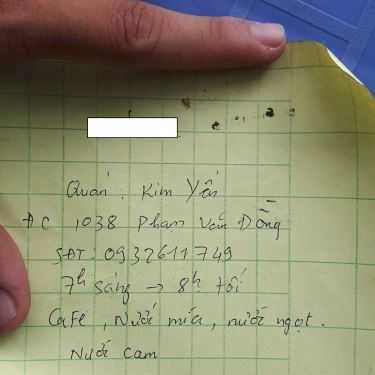 Quán . Kim Yến
ĐC 1038 Phạm Văn Đồng
SĐT: 0932611749
7h sáng → 8h tối
Cafe , Nước mía , nước ngọt .
Nước Cam